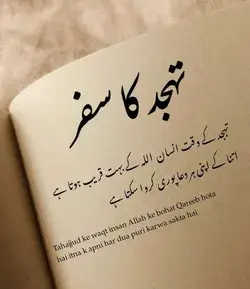 تہجد کا سفر
تہجد کے وقت انسان اللہ کے بہت قریب ہوتا ہے
اتنا کے اپنی ہر دعا پوری کروا سکتا ہے
Tahajjud ke waqt insan Allah ke bohat Qareeb hota
hai itna k apni har dua puri karwa sakta hai